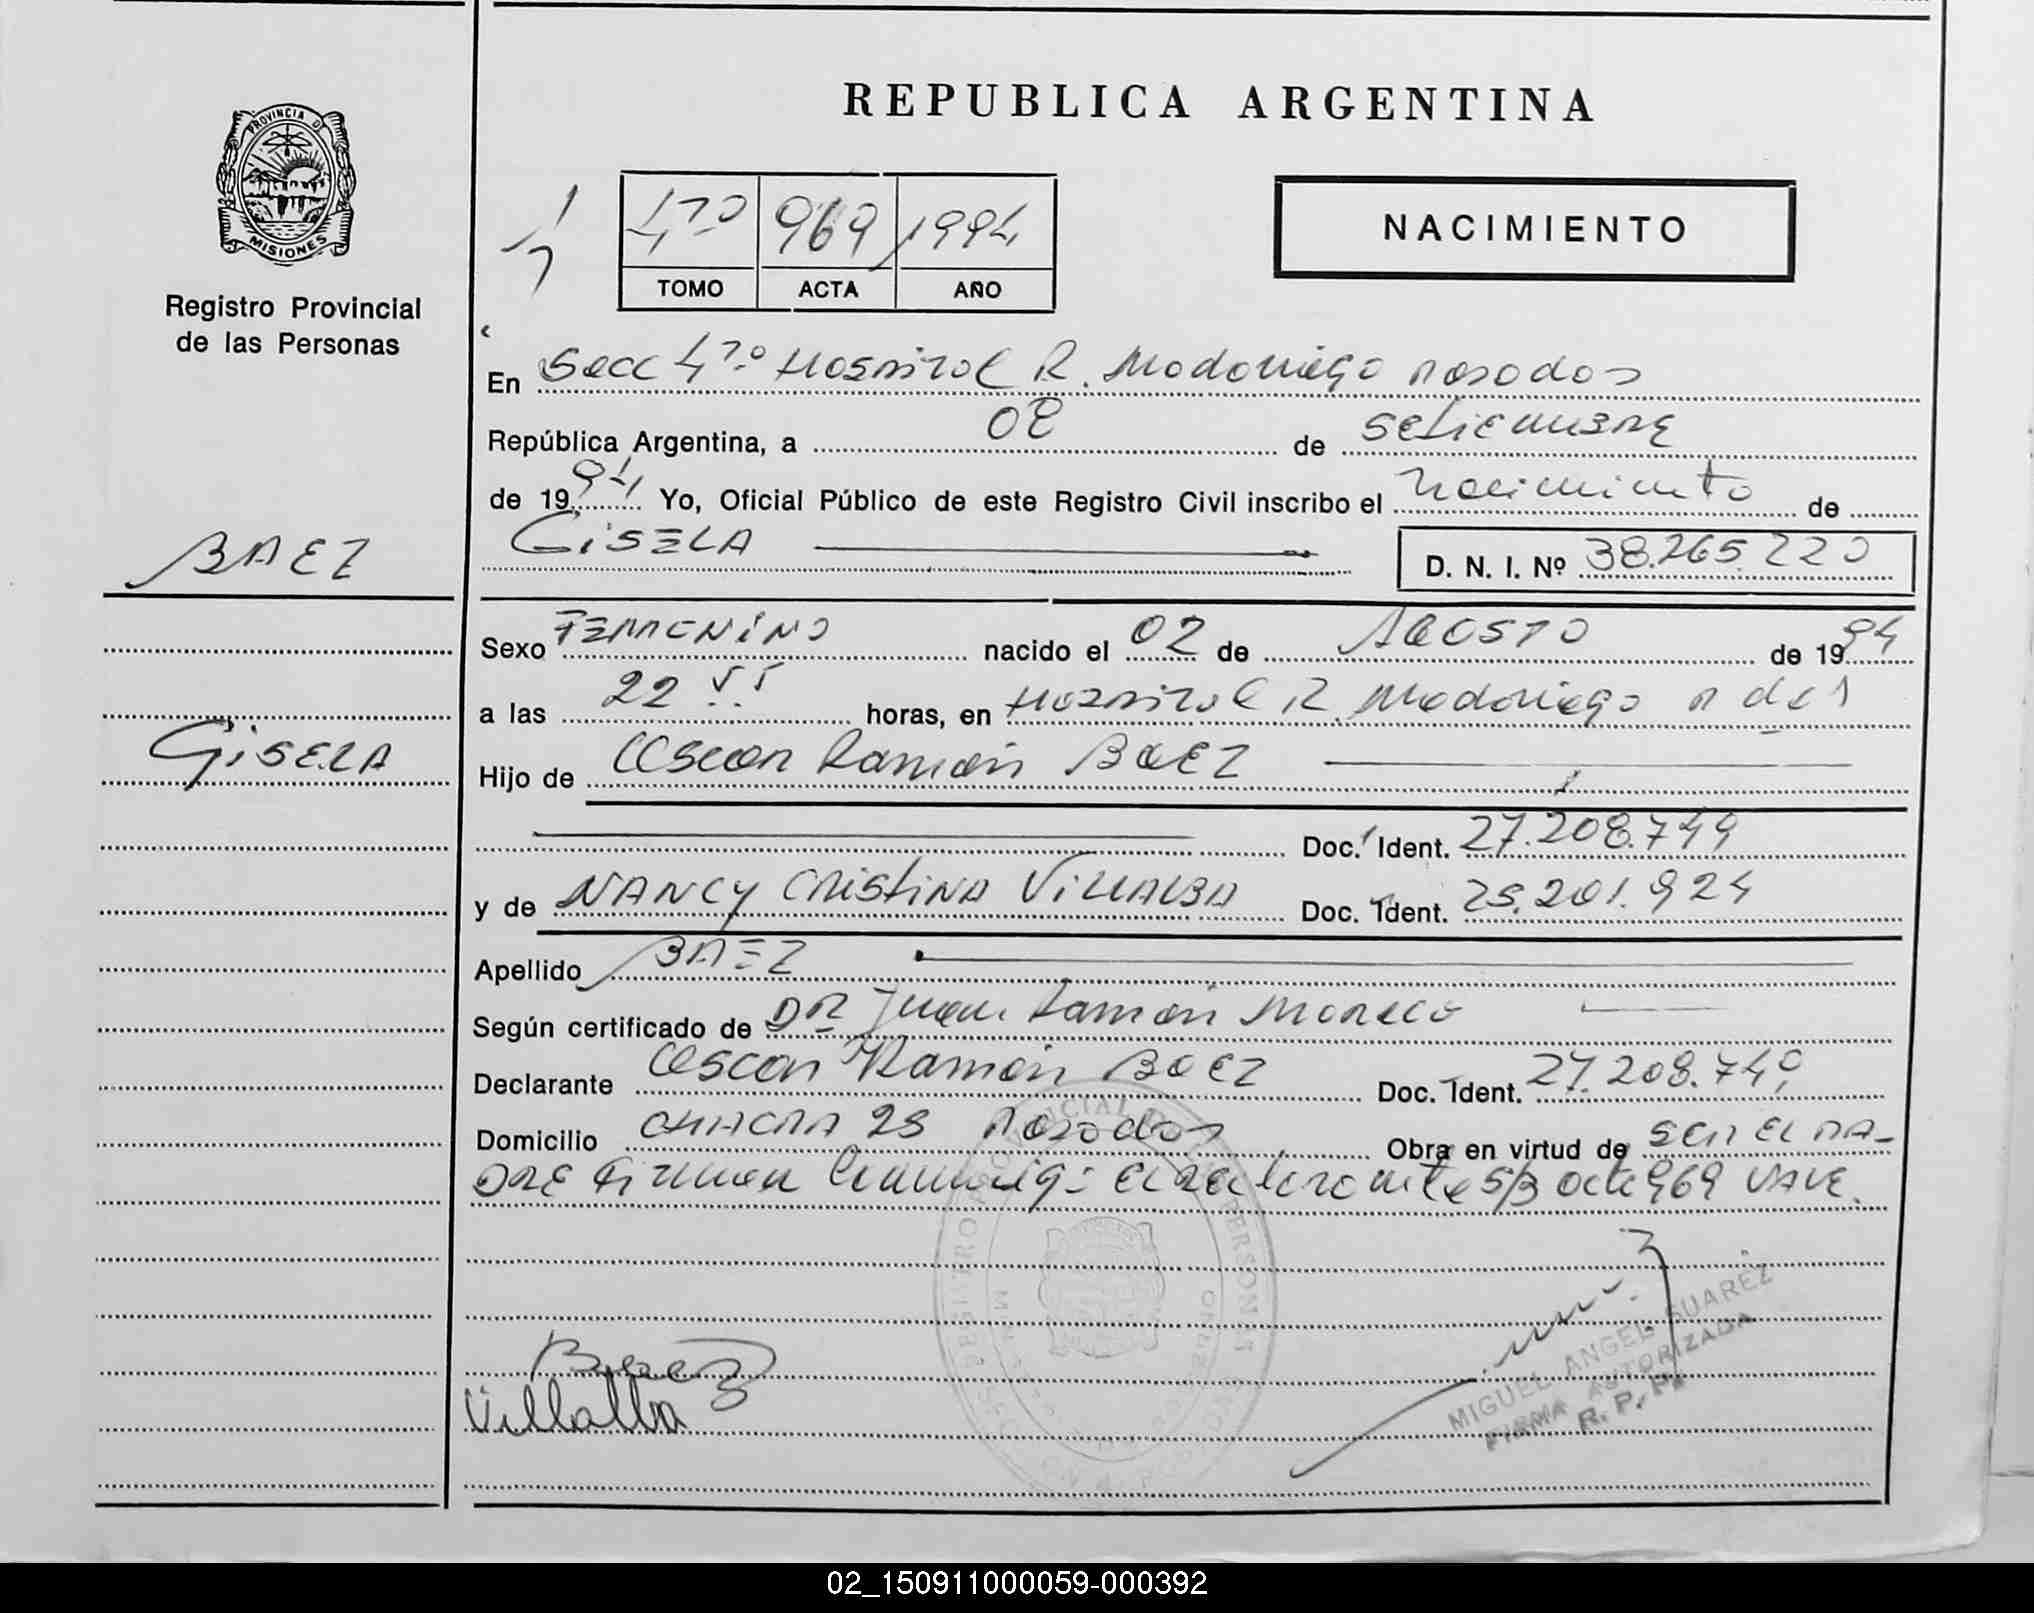 REPUBLICA ARGENTINA
PROVINCIA DE
MISIONES
Registro Provincial
de las Personas
4to 969 1994
TOMO ACTA AÑO
NACIMIENTO
En Secc 4to Hospital R. Madariaga Posadas
República Argentina, a 08 de Setiembre
de 1994 Yo, Oficial Público de este Registro Civil inscribo el Nacimiento de
GISELA
D. N. I. Nº 38.265.220
BAEZ
GISELA
Sexo FEMENINO nacido el 02 de AGOSTO de 1994
a las 22 55 horas, en Hospital R. Madariaga
Hijo de Oscar Ramón BAEZ
Doc. Ident. 27.208.749
y de NANCY CRISTINA VILLALBA Doc. Ident. 25.201.924
Apellido BAEZ
Según certificado de DR Juan Ramón Moreco
Declarante Oscar Ramón BAEZ Doc. Ident. 27.208.749
Domicilio CHACRA 23 Posadas Obra en virtud de SER EL PA-
DRE Firman 969 VALE.
Baez
Villalba
MIGUEL ANGEL SUAREZ
FIRMA AUTORIZADA
R. P. P.
02_150911000059-000392